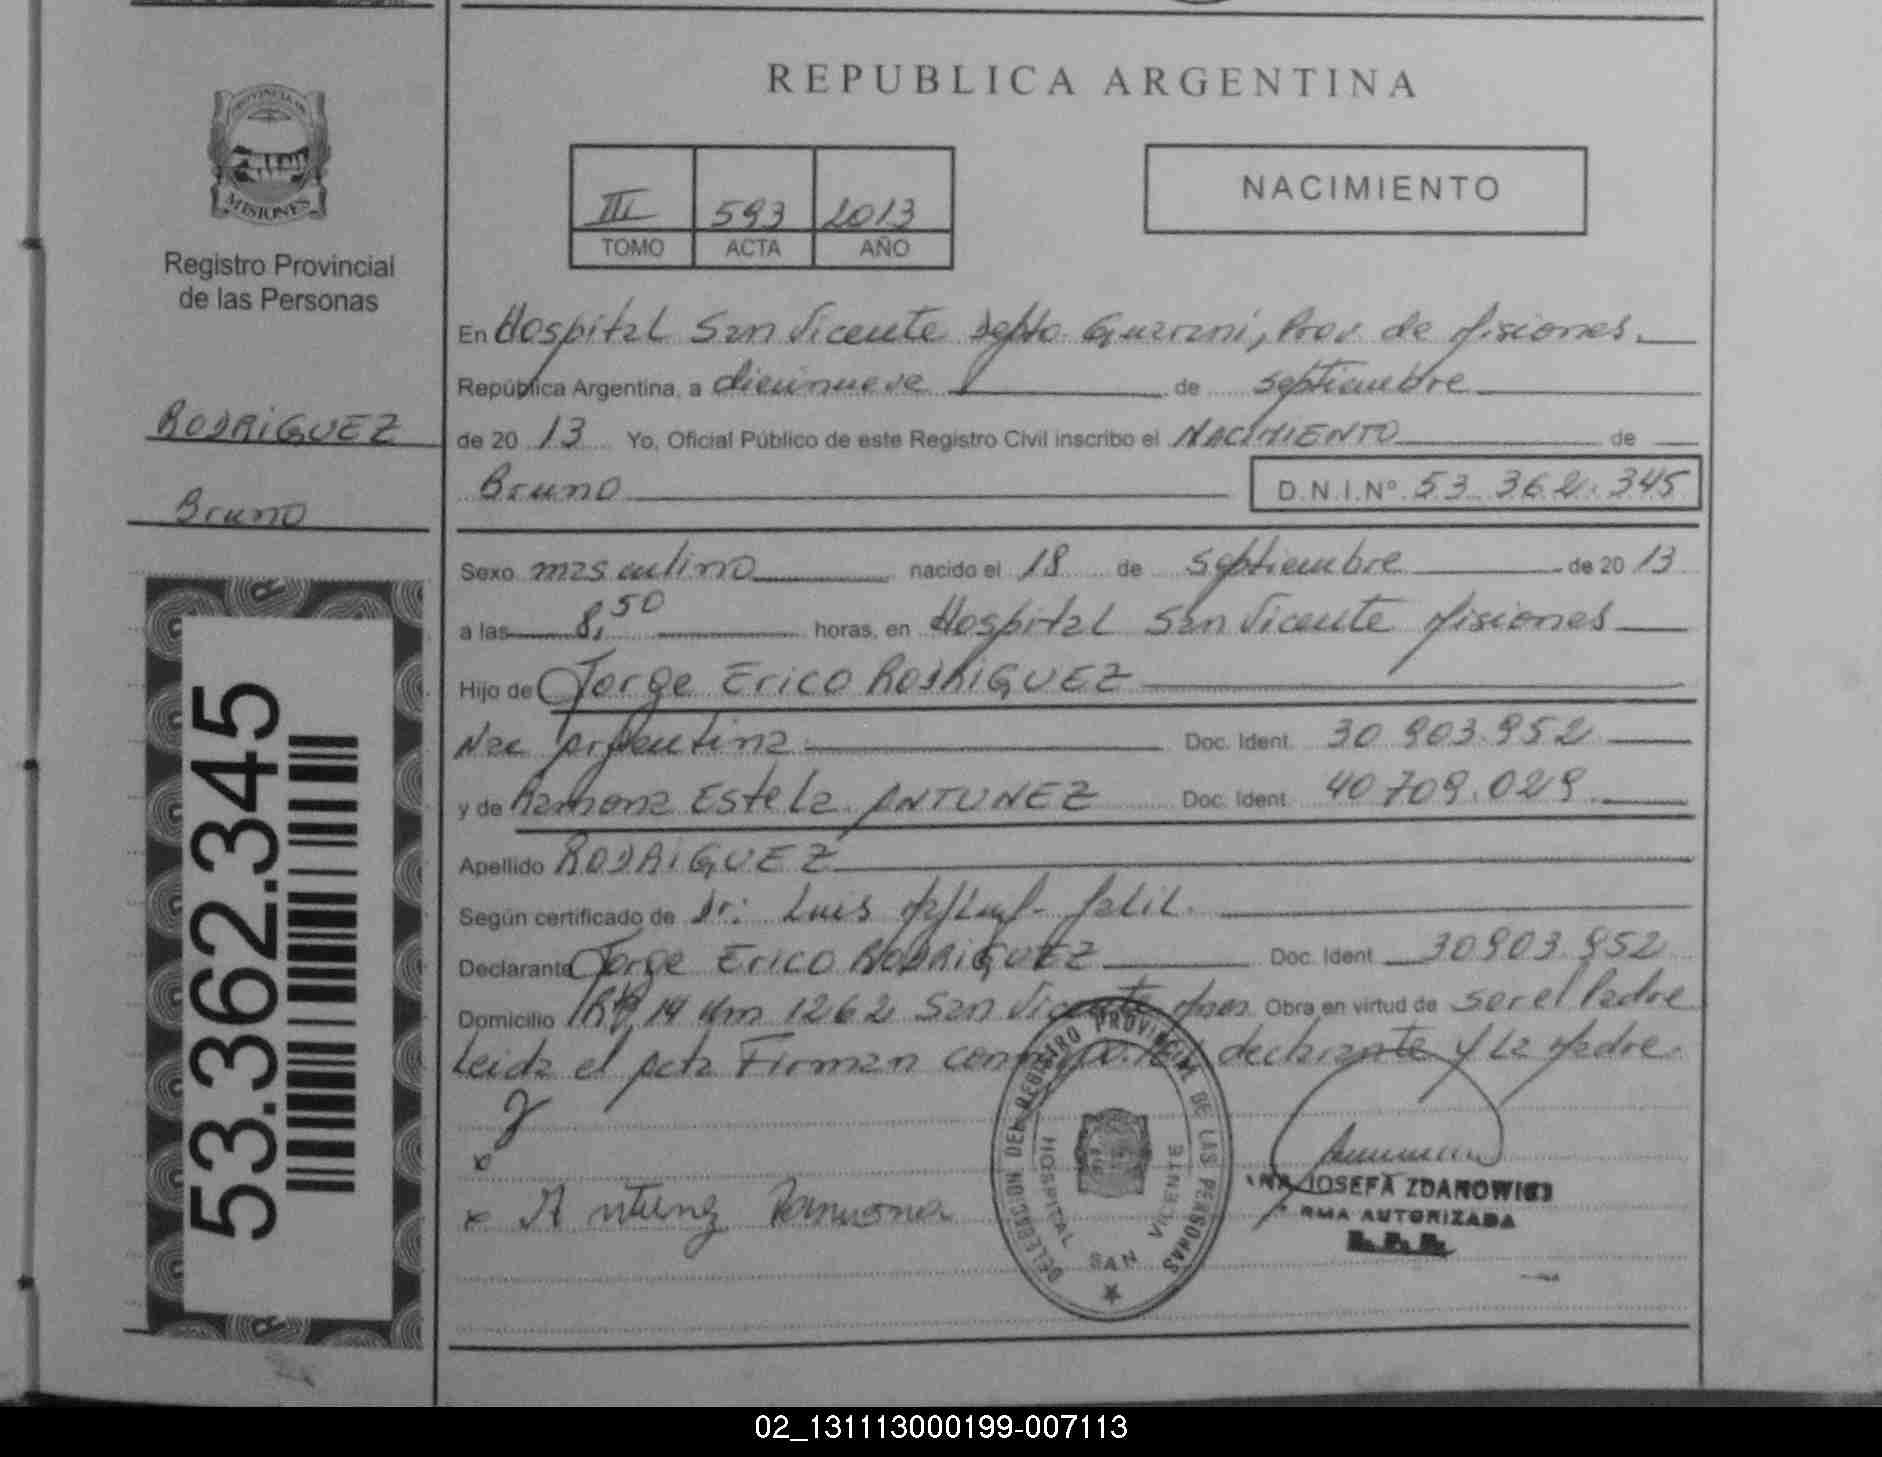 REPUBLICA ARGENTINA
PROVINCIA DE
MISIONES
Registro Provincial
de las Personas
RODRIGUEZ
Bruno
53.362.345
III 593 2013
TOMO ACTA AÑO
NACIMIENTO
En Hospital San Vicente Depto. Guarani, Prov. de Misiones.
República Argentina, a diecinueve de septiembre
de 20 13 Yo, Oficial Público de este Registro Civil inscribo el NACIMIENTO de
Bruno D.N.I.Nº 53.362.345
Sexo masculino nacido el 18 de septiembre de 20 13
a las 8,50 horas, en Hospital San Vicente Misiones
Hijo de Jorge Erico RODRIGUEZ
Nac Argentina Doc. Ident. 30 903.952
y de Ramona Estela ANTUNEZ Doc. Ident. 40 709.029
Apellido RODRIGUEZ
Según certificado de Dr: Luis
Declarante Jorge Erico RODRIGUEZ Doc. Ident 30903.952
Domicilio 14 Km 1262 San Vicente Mnes. Obra en virtud de ser el Padre
Leida el acta Firman declarante y la Madre.
x
x Antunez Ramona
DELEGACION DEL REGISTRO PROVINCIAL DE LAS PERSONAS
HOSPITAL SAN VICENTE
JOSEFA ZDANOWICZ
RMA AUTORIZADA
R.P.P.
02_131113000199-007113